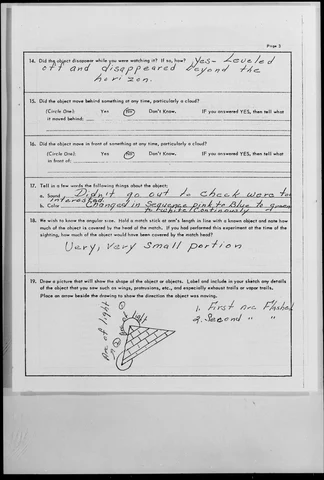 Page 5
14. Did the object disappear while you were watching it? If so, how? Yes - Leveled
off and disappeared beyond the
horizon.
15. Did the object move behind something at any time, particularly a cloud?
(Circle One): Yes No Don't Know. IF you answered YES, then tell what
it moved behind:
16. Did the object move in front of something at any time, particularly a cloud?
(Circle One): Yes No Don't Know. IF you answered YES, then tell what
in front of:
17. Tell in a few words the following things about the object:
a. Sound Didn't go out to check was too
interested
b. Color Changed in Sequence pink to Blue to green
to white (Continously
18. We wish to know the angular size. Hold a match stick at arm's length in line with a known object and note how
much of the object is covered by the head of the match. If you had performed this experiment at the time of the
sighting, how much of the object would have been covered by the match head?
Very, very small portion
19. Draw a picture that will show the shape of the object or objects. Label and include in your sketch any details
of the object that you saw such as wings, protrusions, etc., and especially exhaust trails or vapor trails.
Place an arrow beside the drawing to show the direction the object was moving.
1. First arc Flashed
2. Second " "
Arc of light
1
2
light